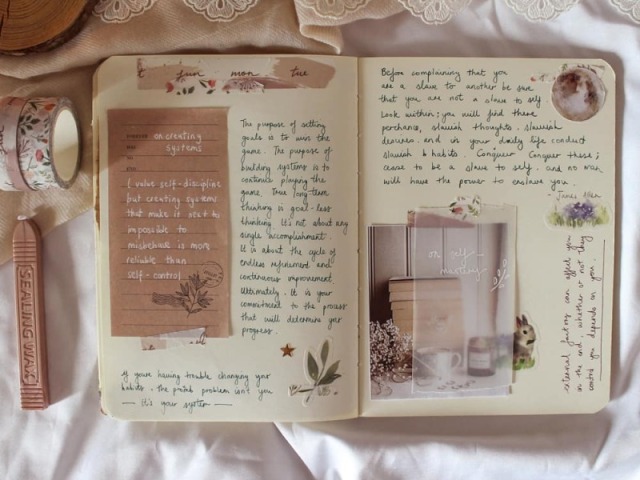 sun mon tue
on creating
systems
I value self-discipline
but creating systems
that make it next to
impossible to
misbehave is more
reliable than
self-control.
The purpose of setting
goals is to win the
game. The purpose of
building systems is to
continue playing the
game. True long-term
thinking is goal-less
thinking. It's not about any
single accomplishment.
It is about the cycle of
endless refinement and
continuous improvement
Ultimately, it is your
commitment to the process
that will determine your
progress.
If you're having trouble changing your
habits, the problem isn't you
— It's your system —
Before complaining that you
are a slave to another be sure
that you are not a slave to self
Look within; you will find there
perchance, slavish thoughts, slavish
desires, and in your daily life conduct
slavish habits. Conquer these;
cease to be a slave to self, and no man
will have the power to enslave you.
James Allen
on self-
mastery
external factors can affect you
in the end, whether or not they
control you depends on you.
SEALING WAX